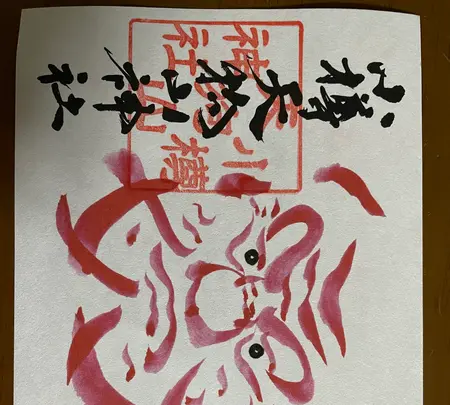 小樽天狗山神社
小樽
天狗山
神社